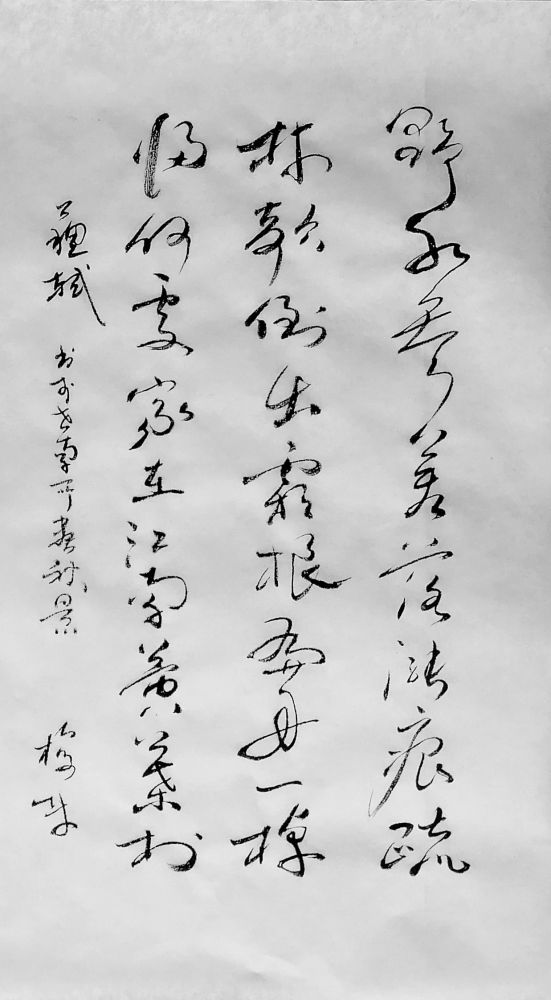 野水參差落漲痕疏
林欹倒出霜根扁舟一棹
歸何處家在江南黃葉村
蘇軾 書李世南所畫秋景